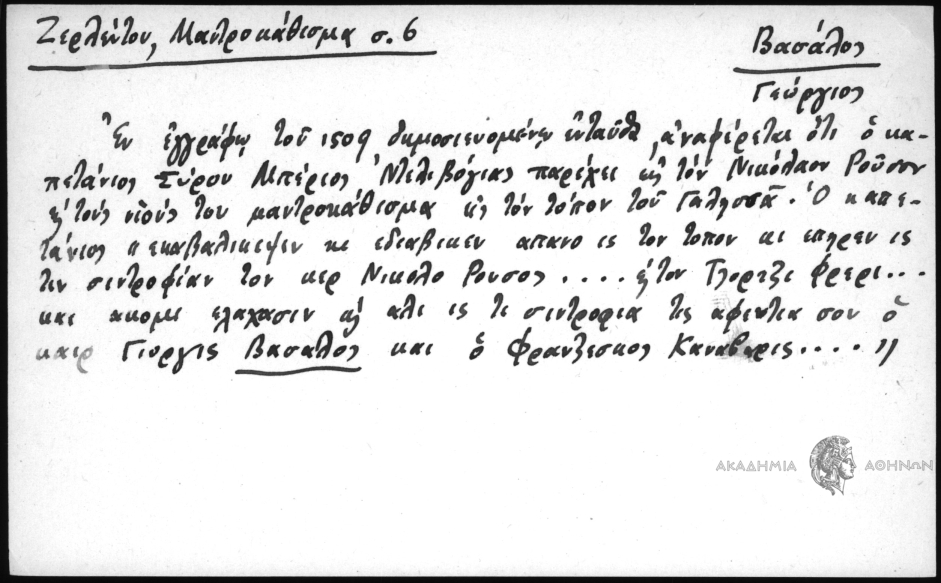 Ζερλέντου, Μαντροκάθισμα σ. 6
Βασάλος
Γεώργιος
Ἐν ἐγγράφῳ τοῦ 1509 δημοσιευομένῳ ἐνταῦθα, ἀναφέρεται ὅτι ὁ κα-
πετάνιος Σύρου Μπέριος Ντελιβόγιας παρέχει εἰς τὸν Νικόλαον Ροῦσσον
καὶ τοὺς υἱούς του μαντροκάθισμα εἰς τὸν τόπον τοῦ Γαλησσᾶ. Ὁ καπε-
τάνιος "εκαβαλικεψεν κε εδιαβικεν απανο ις τον τοπον κε επηρεν ις
τιν σιντροφίαν τον κερ Νικολο Ρουσος .... καὶ τον Τζορτζι Φρερι...
και ακομι ελαχασιν καὶ αλι ις τι σιντροφια τις αφεντια σου ὁ
καιρ Γιοργις Βασαλος και ὁ Φρανζεσκος Καναβαρις.... "
ΑΚΑΔΗΜΙΑ ΑΘΗΝΩΝ